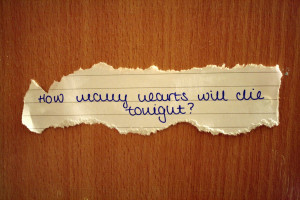 How many hearts will die
tonight?